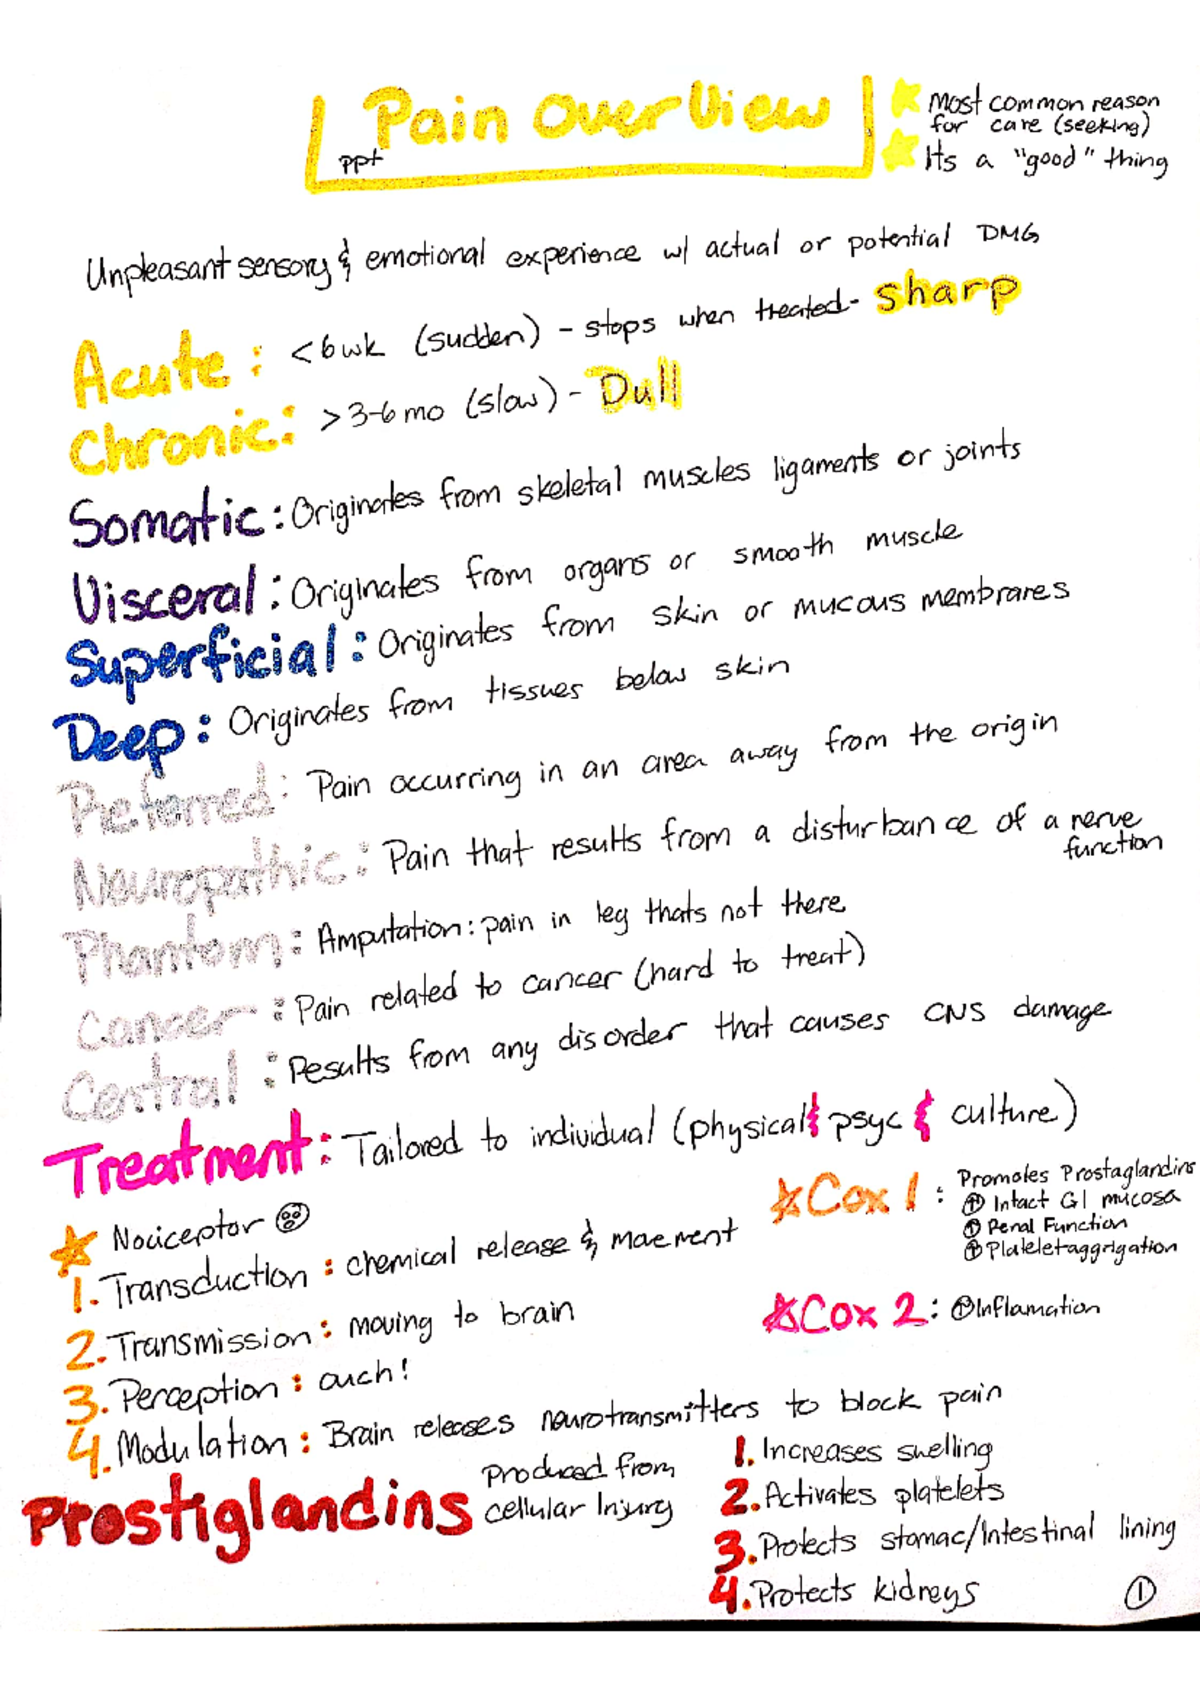 Pain Overview
ppt
Most common reason
for care (seeking)
Its a "good" thing
Unpleasant sensory & emotional experience w/ actual or potential DMG
Acute: <6wk (sudden) - stops when treated- sharp
Chronic: >3-6mo (slow) - Dull
Somatic: Originates from skeletal muscles ligaments or joints
Visceral: Originates from organs or smooth muscle
Superficial: Originates from skin or mucous membranes
Deep: Originates from tissues below skin
Referred: Pain occurring in an area away from the origin
Neuropathic: Pain that results from a disturbance of a nerve
function
Phantom: Amputation: pain in leg thats not there
Cancer: Pain related to cancer (hard to treat)
Central: Results from any disorder that causes CNS damage
Treatment: Tailored to individual (physical & psyc & culture)
Nociceptor
1. Transduction: chemical release & movement
2. Transmission: moving to brain
3. Perception: ouch!
4. Modulation: Brain releases neurotransmitters to block pain
Cox 1: Promotes Prostaglandins
↑ Intact GI mucosa
↑ Renal Function
↑ Platelet aggrigation
Cox 2: ↑ Inflamation
Prostiglandins produced from
cellular Injury
1. Increases swelling
2. Activates platelets
3. Protects stomac/Intestinal lining
4. Protects kidneys
1